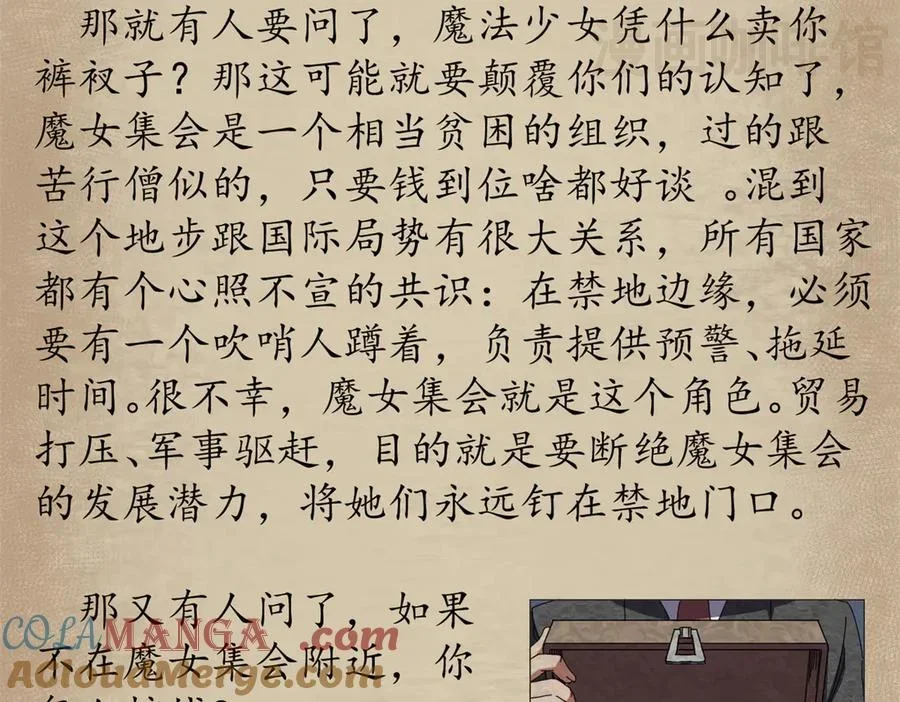 那就有人要问了，魔法少女凭什么卖你
裤衩子？那这可能就要颠覆你们的认知了，
魔女集会是一个相当贫困的组织，过的跟
苦行僧似的，只要钱到位啥都好谈 。混到
这个地步跟国际局势有很大关系，所有国家
都有个心照不宣的共识：在禁地边缘，必须
要有一个吹哨人蹲着，负责提供预警、拖延
时间。很不幸，魔女集会就是这个角色。贸易
打压、军事驱赶，目的就是要断绝魔女集会
的发展潜力，将她们永远钉在禁地门口。
那又有人问了，如果
COLAMANGA.com
不在魔女集会附近，你
AiaoudiMerge.com